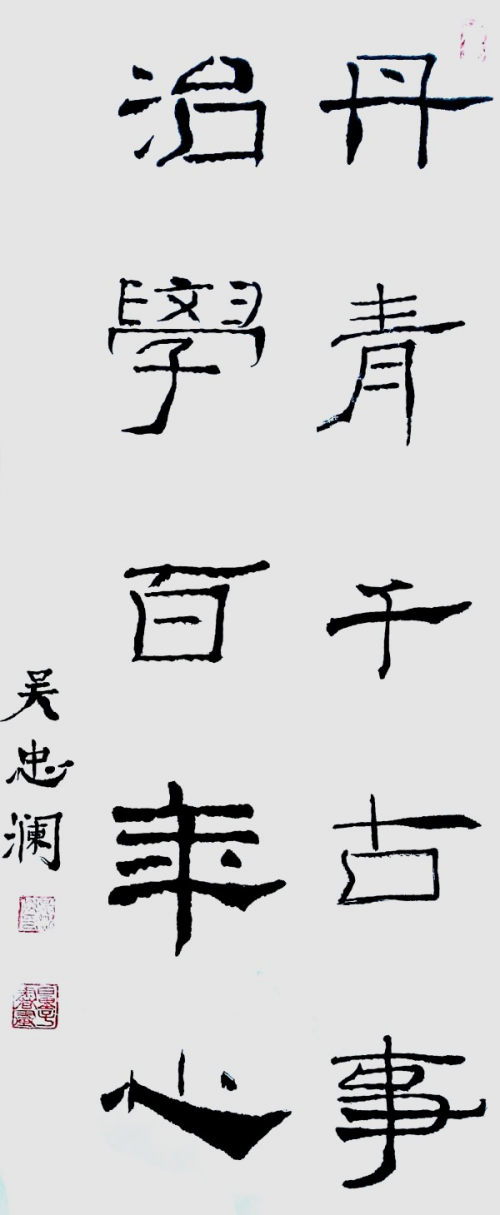 丹青千古事
治學百年心
吴忠澜